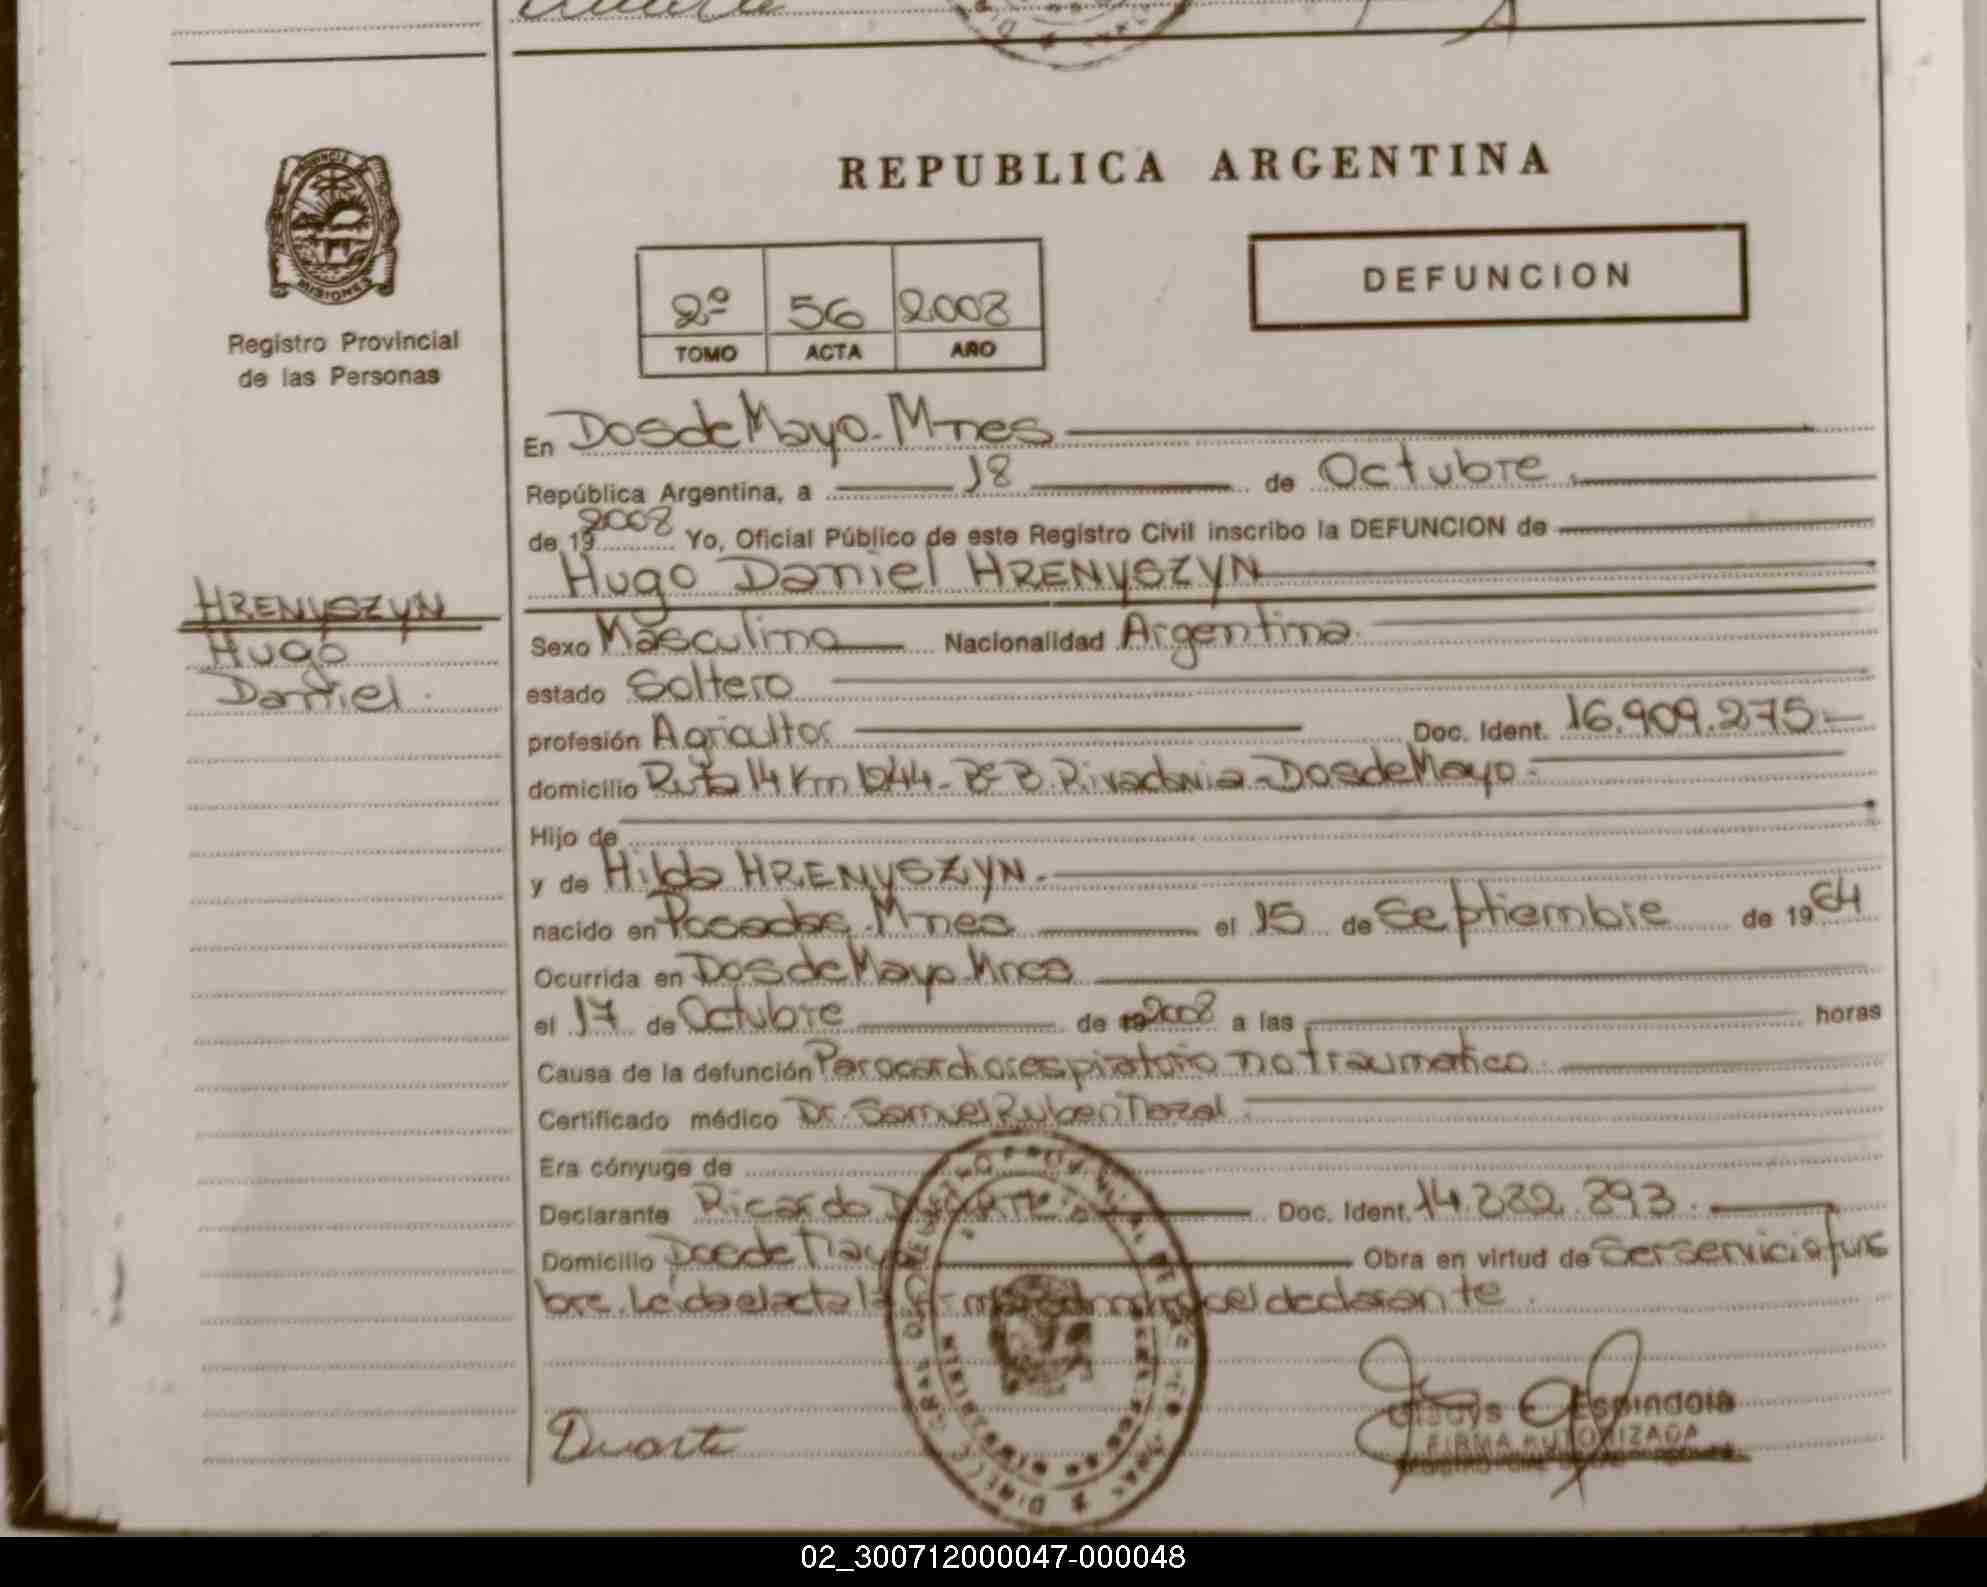 REPUBLICA ARGENTINA
PROVINCIA
MISIONES
Registro Provincial
de las Personas
2º 56 2008
TOMO ACTA AÑO
DEFUNCION
En Dos de Mayo. Mnes
República Argentina, a 18 de Octubre
de 19 2008 Yo, Oficial Público de este Registro Civil inscribo la DEFUNCION de
Hugo Daniel HRENYSZYN
HRENYSZYN
Hugo
Daniel.
Sexo Masculino Nacionalidad Argentina
estado Soltero
profesión Agricultor Doc. Ident. 16.909.275.-
domicilio Ruta 14 Km 1244- Bº B. Rivadavia-Dos de Mayo.
Hijo de
y de Hilda HRENYSZYN.
nacido en Posadas. Mnes el 15 de Septiembre de 19 64
Ocurrida en Dos de Mayo. Mnes
el 17 de Octubre de 19 2008 a las horas
Causa de la defunción Paro cardiorespiratorio no traumatico.
Certificado médico Dr. Samuel Ruben
Era cónyuge de
Declarante Ricardo DUARTE Doc. Ident. 14.332.393.
Domicilio Dos de Mayo Obra en virtud de ser servicio fune
bre. Leida el acta la firma conmigo el declarante.
Duarte
Espindola
FIRMA AUTORIZADA
02_300712000047-000048